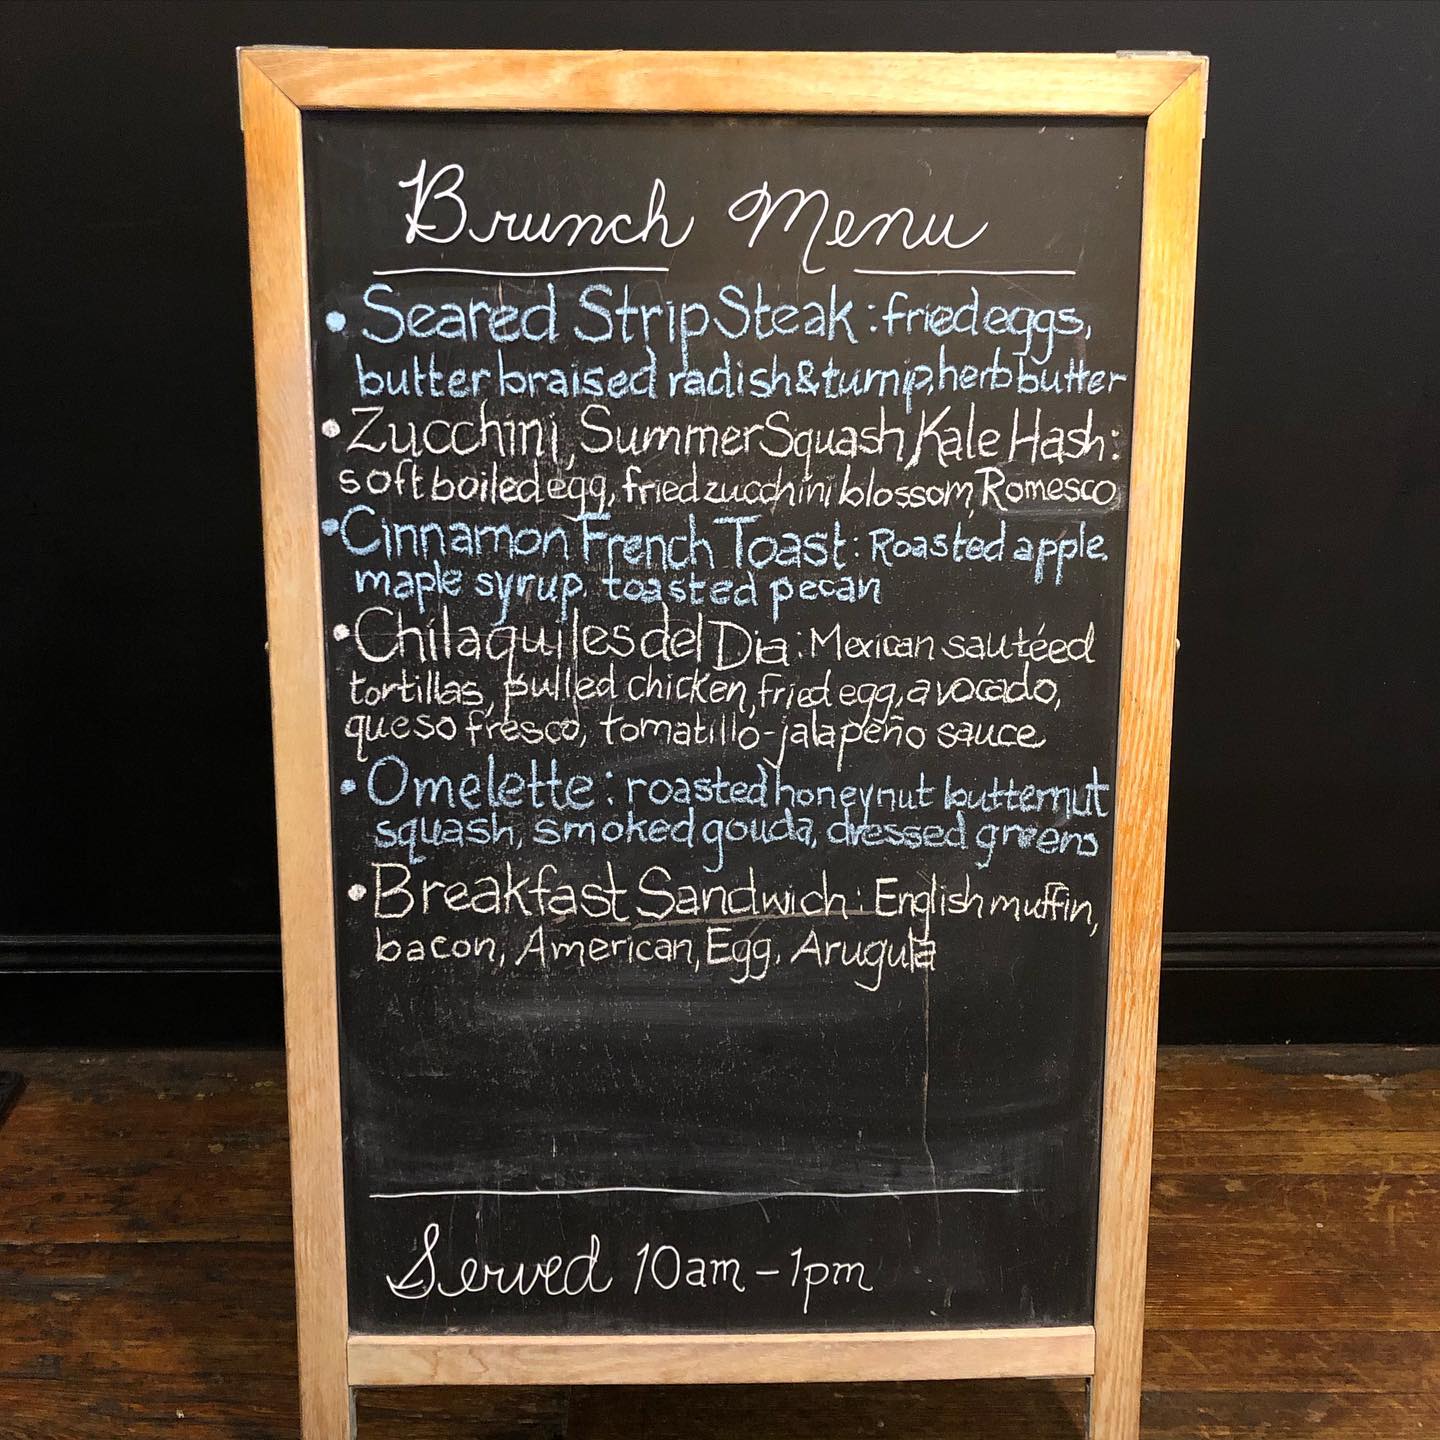 Brunch Menu
• Seared Strip Steak: fried eggs,
butter braised radish & turnip, herb butter
• Zucchini, Summer Squash, Kale Hash:
soft boiled egg, fried zucchini blossom, Romesco
• Cinnamon French Toast: Roasted apple
maple syrup, toasted pecan
• Chilaquiles del Dia: Mexican sautéed
tortillas, pulled chicken, fried egg, avocado,
queso fresco, tomatillo-jalapeño sauce
• Omelette: roasted honeynut butternut
squash, smoked gouda, dressed greens
• Breakfast Sandwich: English muffin,
bacon, American, Egg, Arugula
Served 10am - 1pm